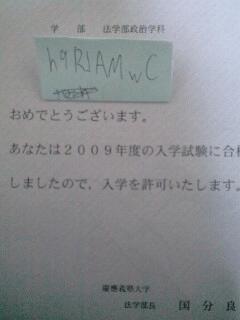 学 部 法学部政治学科
h9RIAMwC
おめでとうございます。
あなたは2009年度の入学試験に合格
しましたので、入学を許可いたします。
慶應義塾大学
法学部長 国 分 良